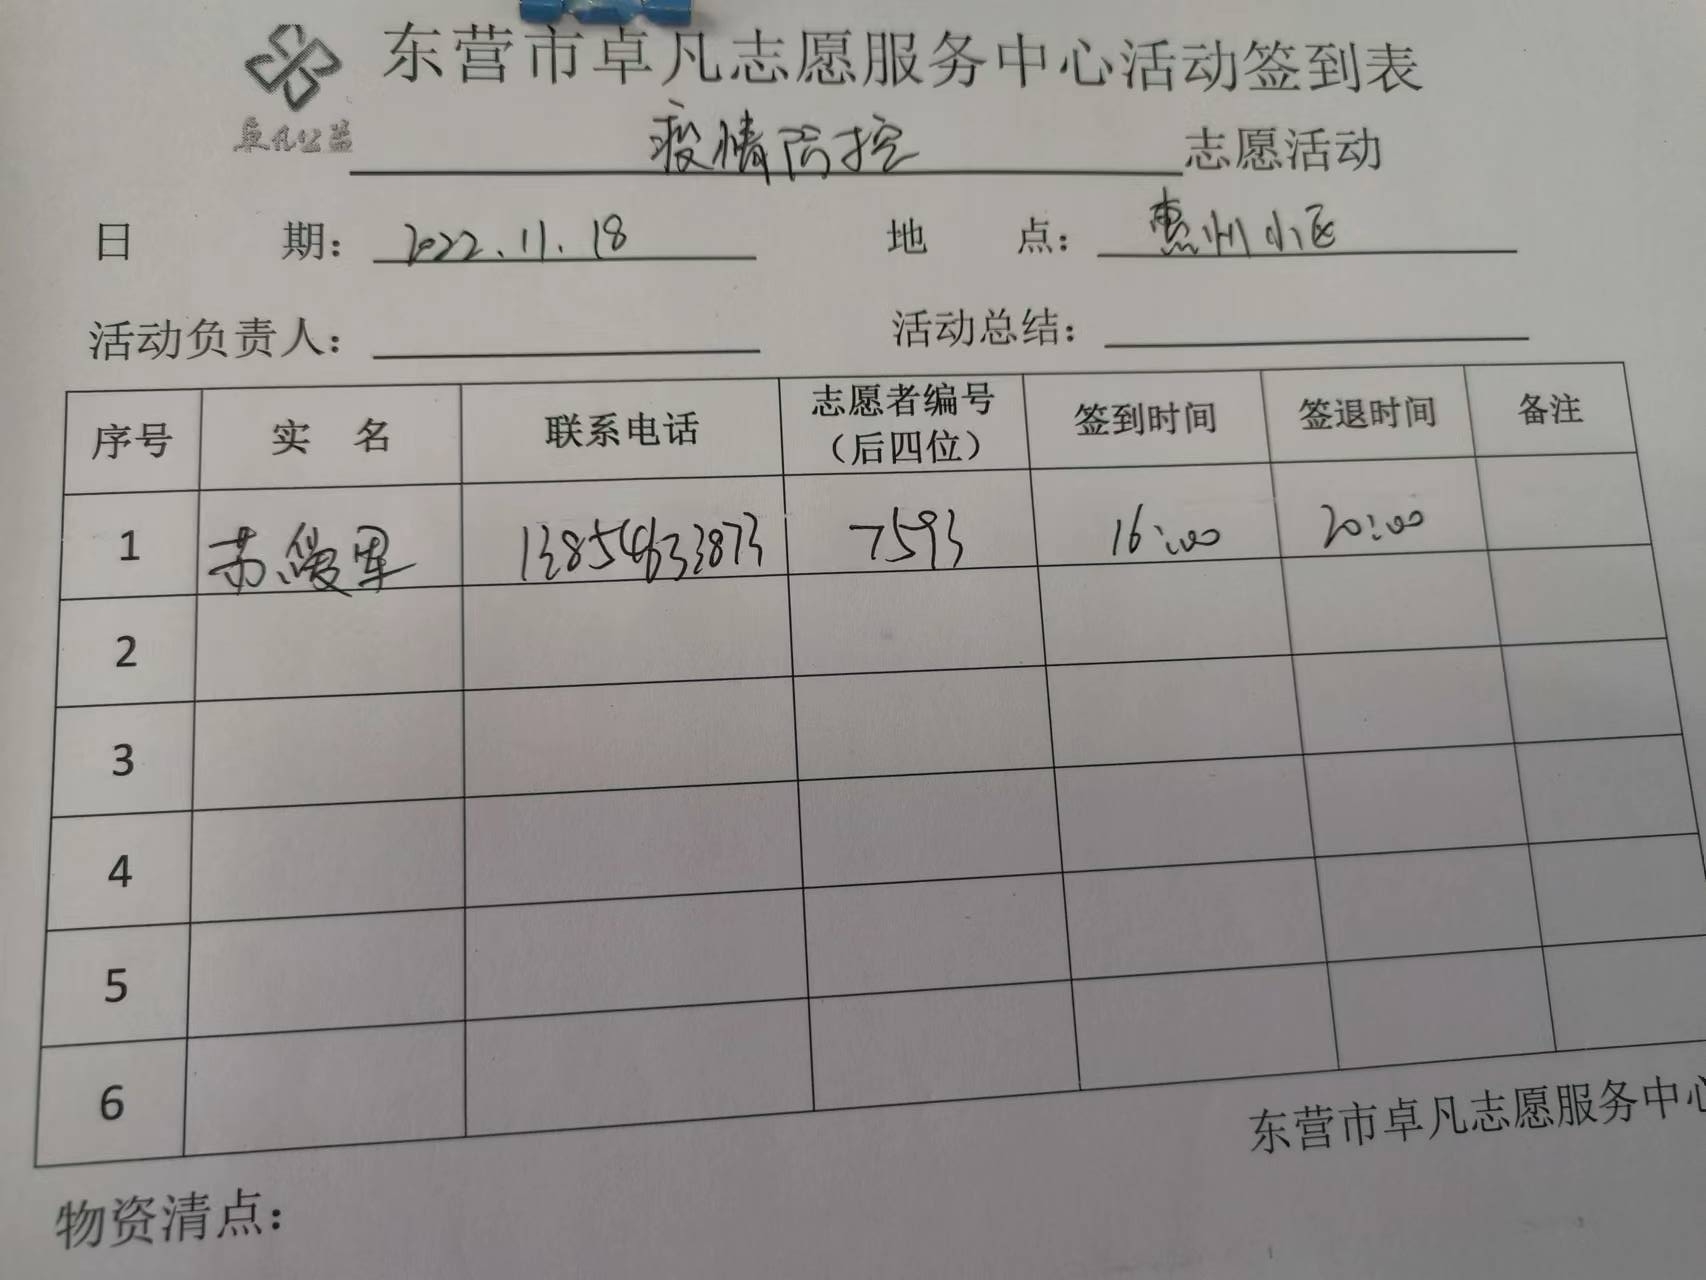 东营市卓凡志愿服务中心活动签到表
卓凡公益
疫情防控 志愿活动
日 期： 2022.11.18 地 点： 惠州小区
活动负责人： 活动总结：
序号 实 名 联系电话 志愿者编号（后四位） 签到时间 签退时间 备注
1 苏 军 13854633873 7593 16:00 20:00
2
3
4
5
6
东营市卓凡志愿服务中心
物资清点：